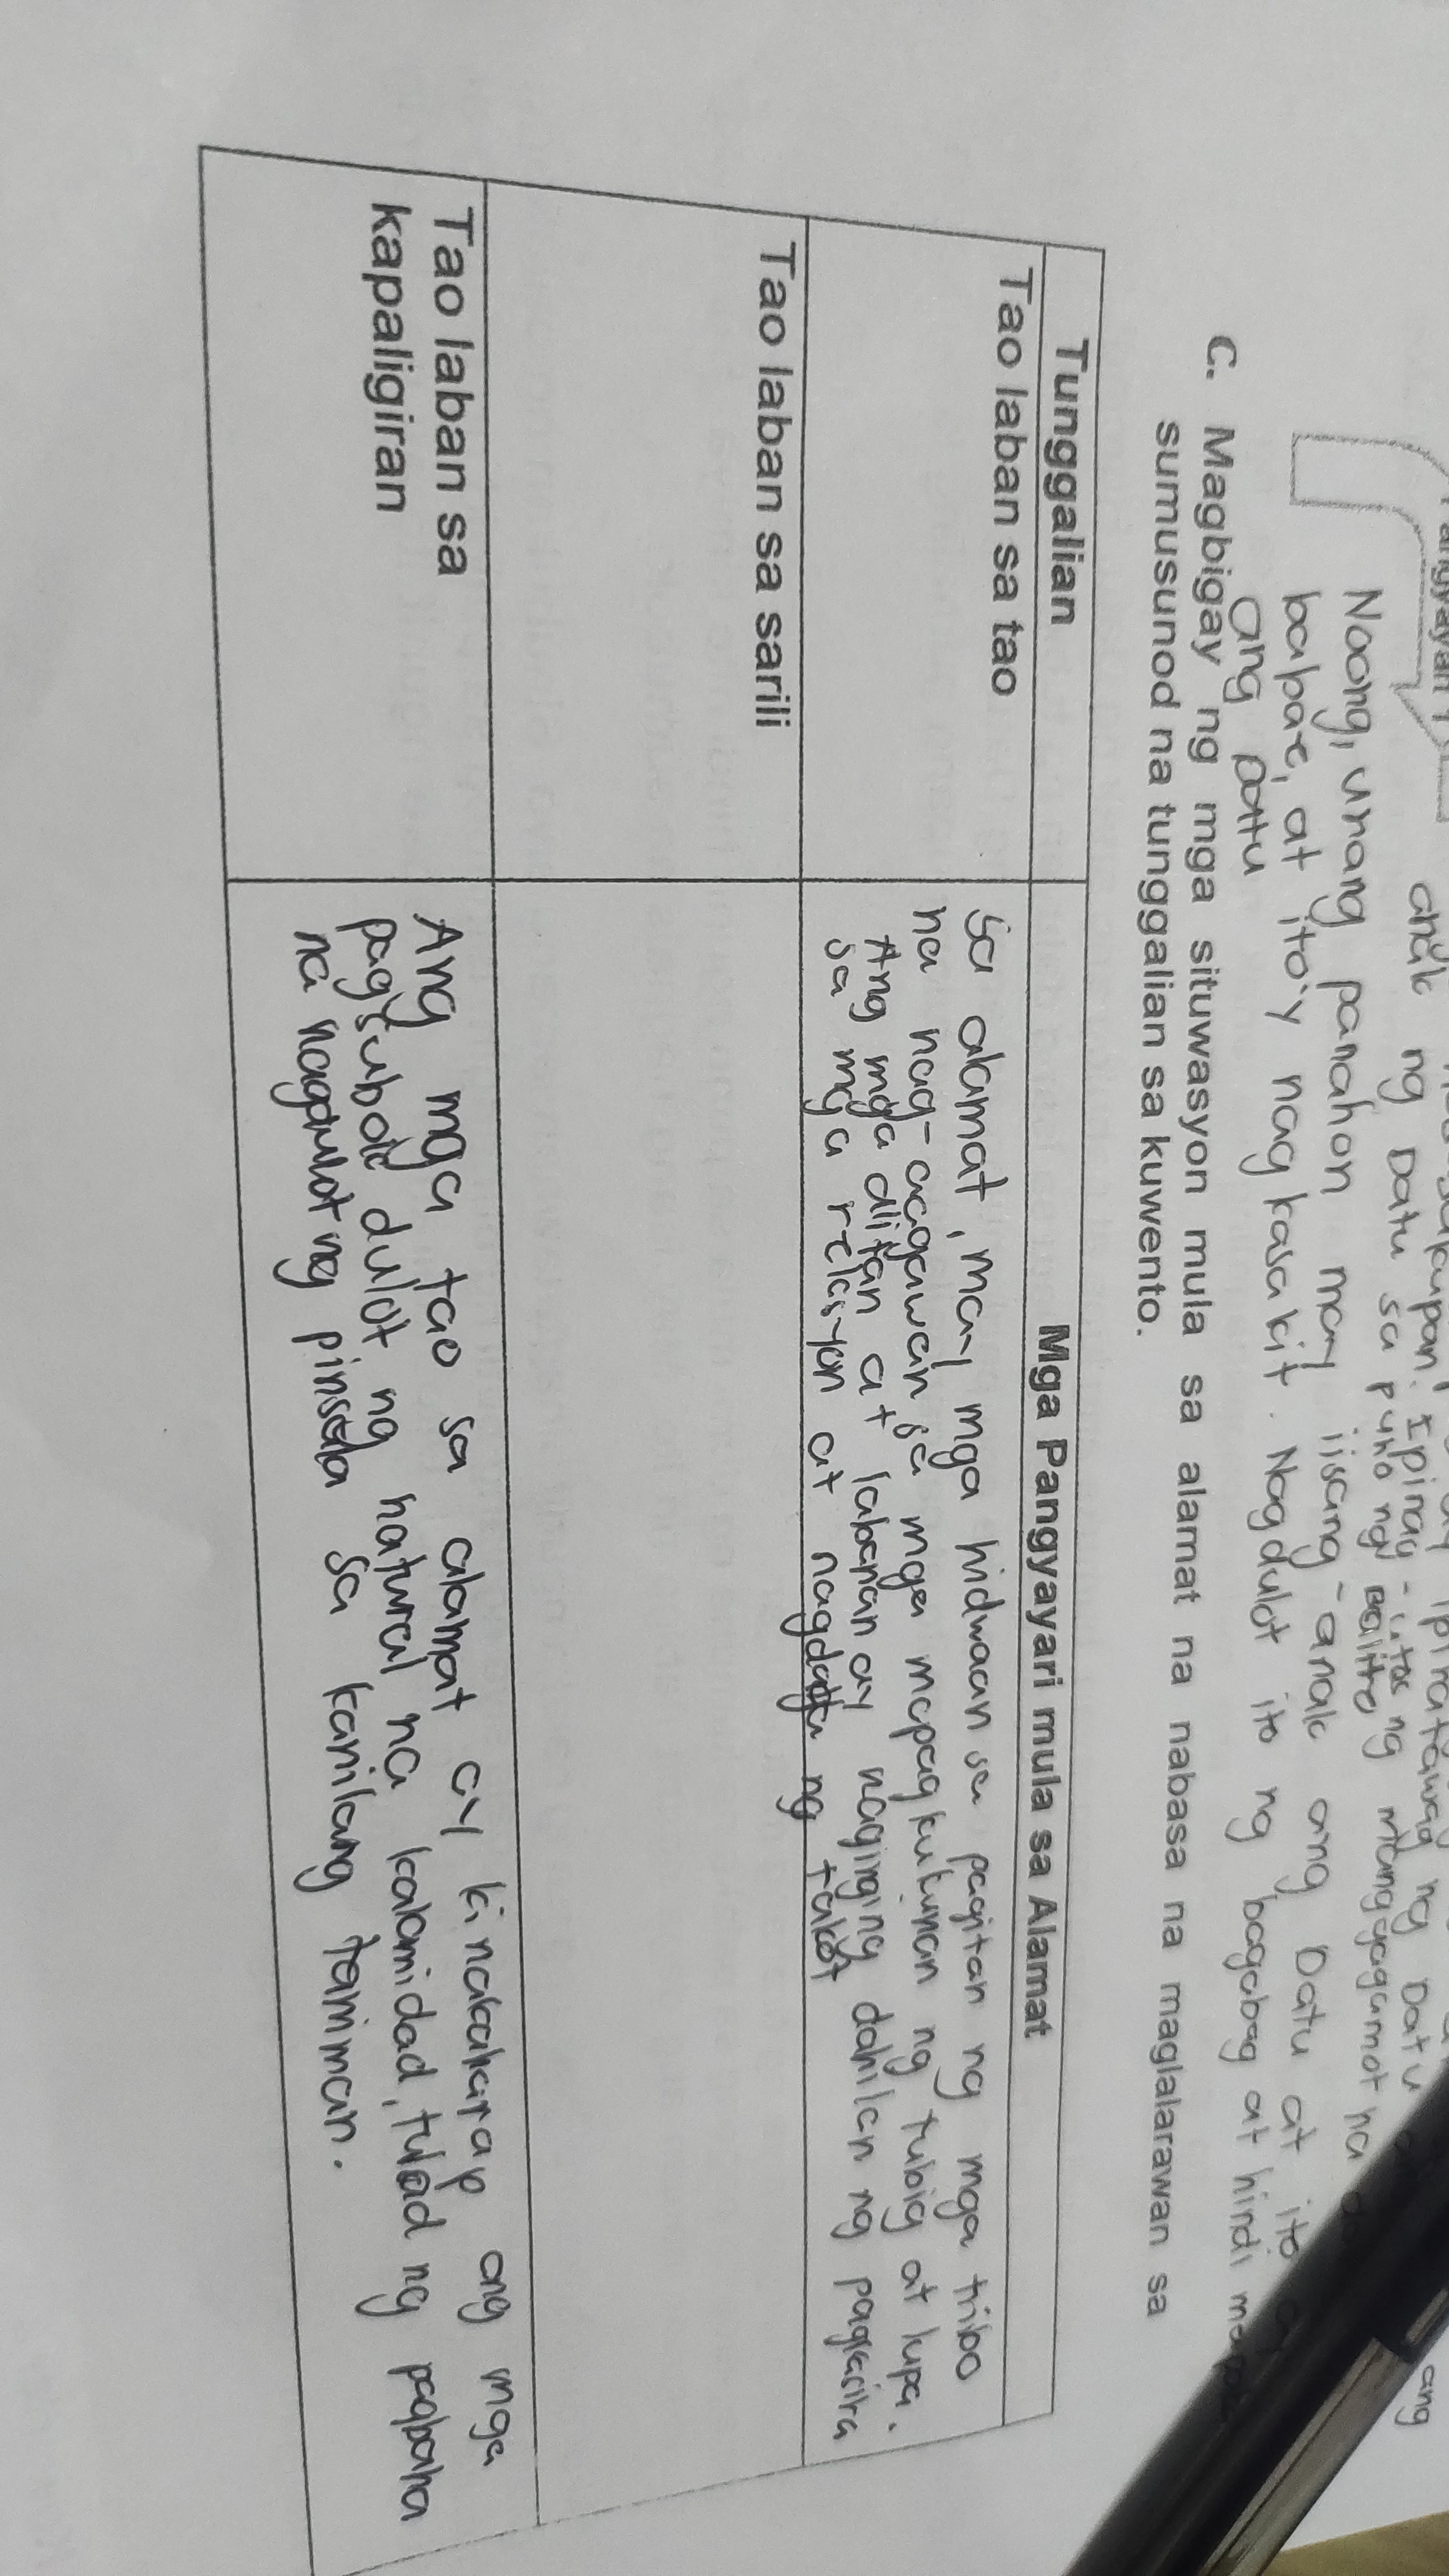 anak ng Datu sa puno ng Balite,
Noong, unang panahon may iisang-anak ang Datu at ito
babae, at ito'y nagkasakit. Nagdulot ito ng bagabag at hindi
ang Datu
C. Magbigay ng mga situwasyon mula sa alamat na nabasa na maglalarawan sa
sumusunod na tunggalian sa kuwento.
Tunggalian
Mga Pangyayari mula sa Alamat
Tao laban sa tao
Sa alamat, may mga hidwaan sa pagitan ng mga tribo
na nag-aagawan sa mga mapagkukunan ng tubig at lupa.
Ang mga alitan at labanan ay naging dahilan ng pagkasira
sa mga relasyon at ng takot
Tao laban sa sarili
Tao laban sa
kapaligiran
Ang mga tao sa alamat ay kinakaharap ang mga
pagsubok dulot ng natural na kalamidad, tulad ng pagbaha
na nagdulot ng pinsala sa kanilang taniman.